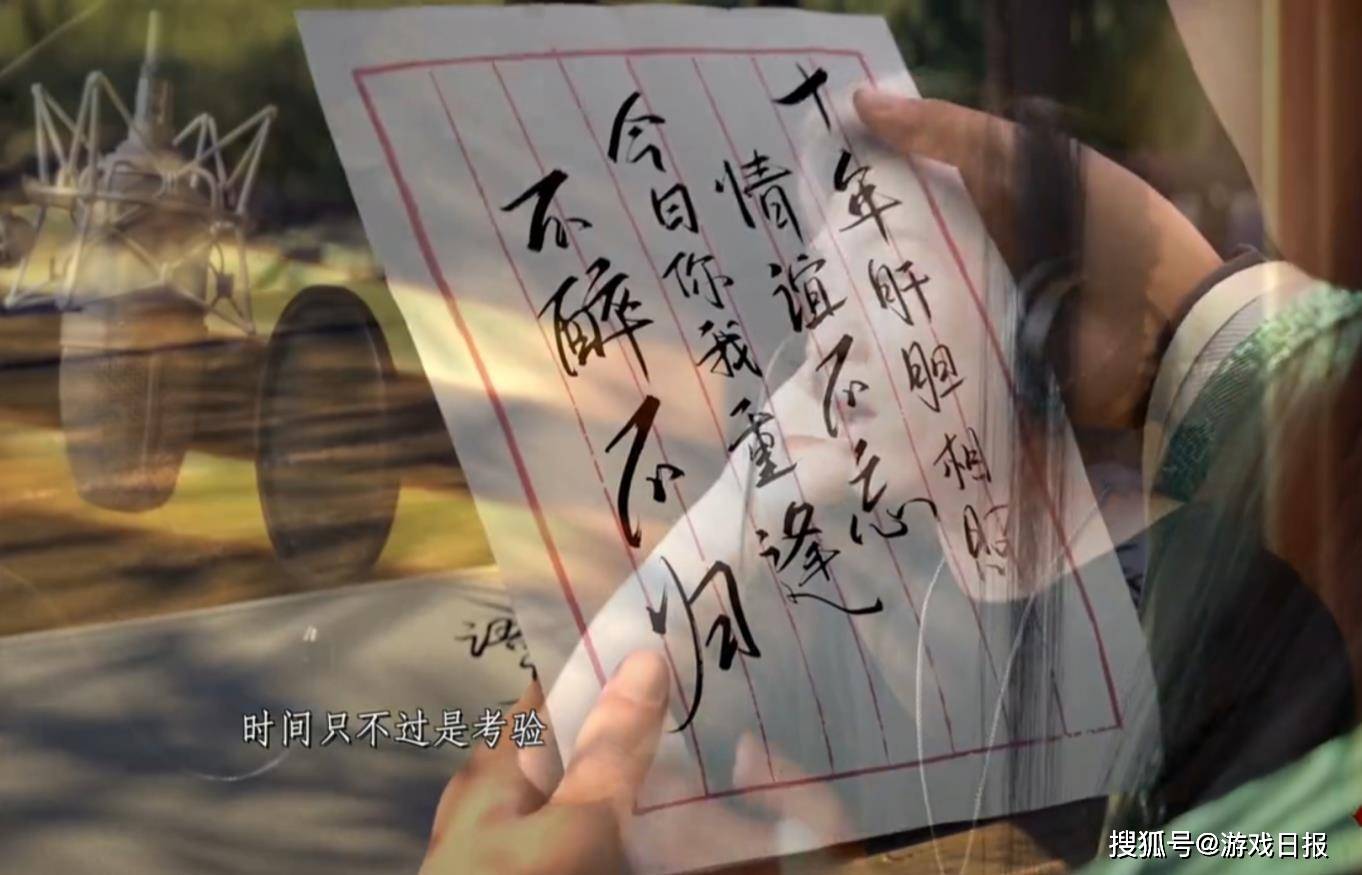 十年肝胆相照
情谊不忘
今日你我重逢
不醉不归
时间只不过是考验
搜狐号@游戏日报